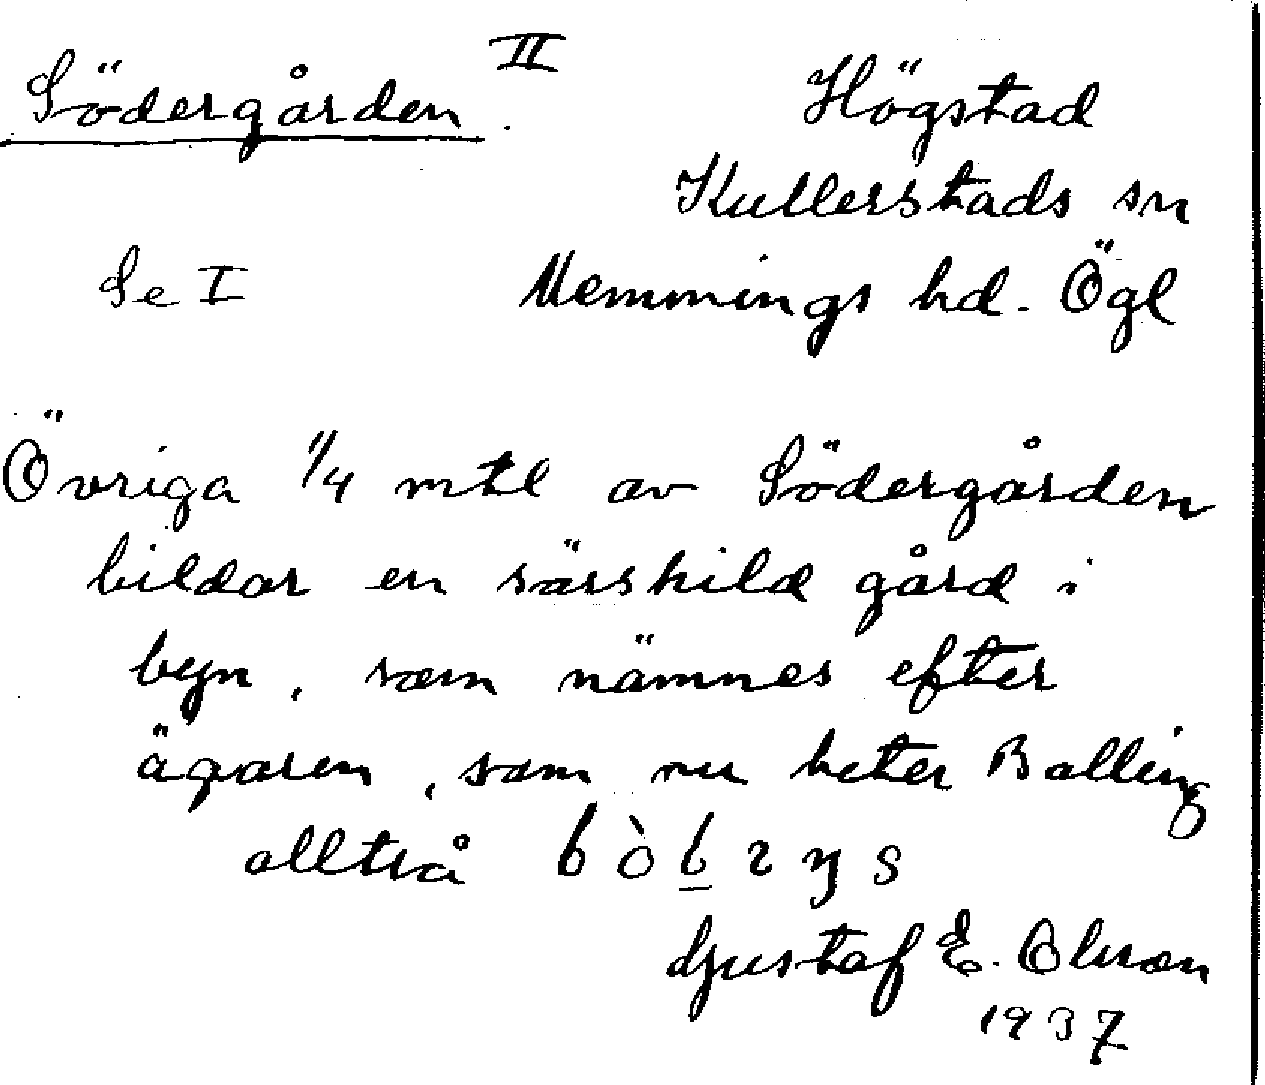 Södergården II Högstad
Kullerstads sn
Se I Memmings hd. Ögl
Övriga 1/4 mtl av Södergården
bildar en särskild gård i
byn, som nämnes efter
ägaren, som nu heter Balling
alltså
Gustaf E. Olsson
1937